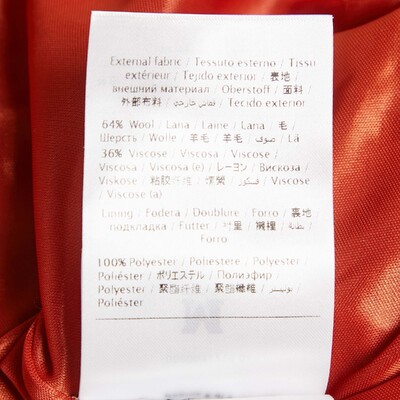 External fabric / Tessuto esterno / Tissu
extérieur / Tejido exterior / 表地 /
внешний материал / Oberstoff / 面料 /
外部布料 / قماش خارجي / Tecido exterior
64% Wool / Lana / Laine / Lana / 毛 /
Шерсть / Wolle / 羊毛 / 羊毛 / صوف / Lã
36% Viscose / Viscosa / Viscose /
Viscosa / Viscosa (e) / レーヨン / Вискоза /
Viskose / 粘胶纤维 / 嫘縈 / فسكوز / Viscose
/ Viscose (a)
Lining / Fodera / Doublure / Forro / 裏地
/ подкладка / Futter / 衬里 / 襯裡 / بطانة /
Forro
100% Polyester / Poliestere / Polyester /
Poliéster / ポリエステル / Полиэфир /
Polyester / 聚酯纤维 / 聚酯纖維 / بوليستر /
Poliéster
M